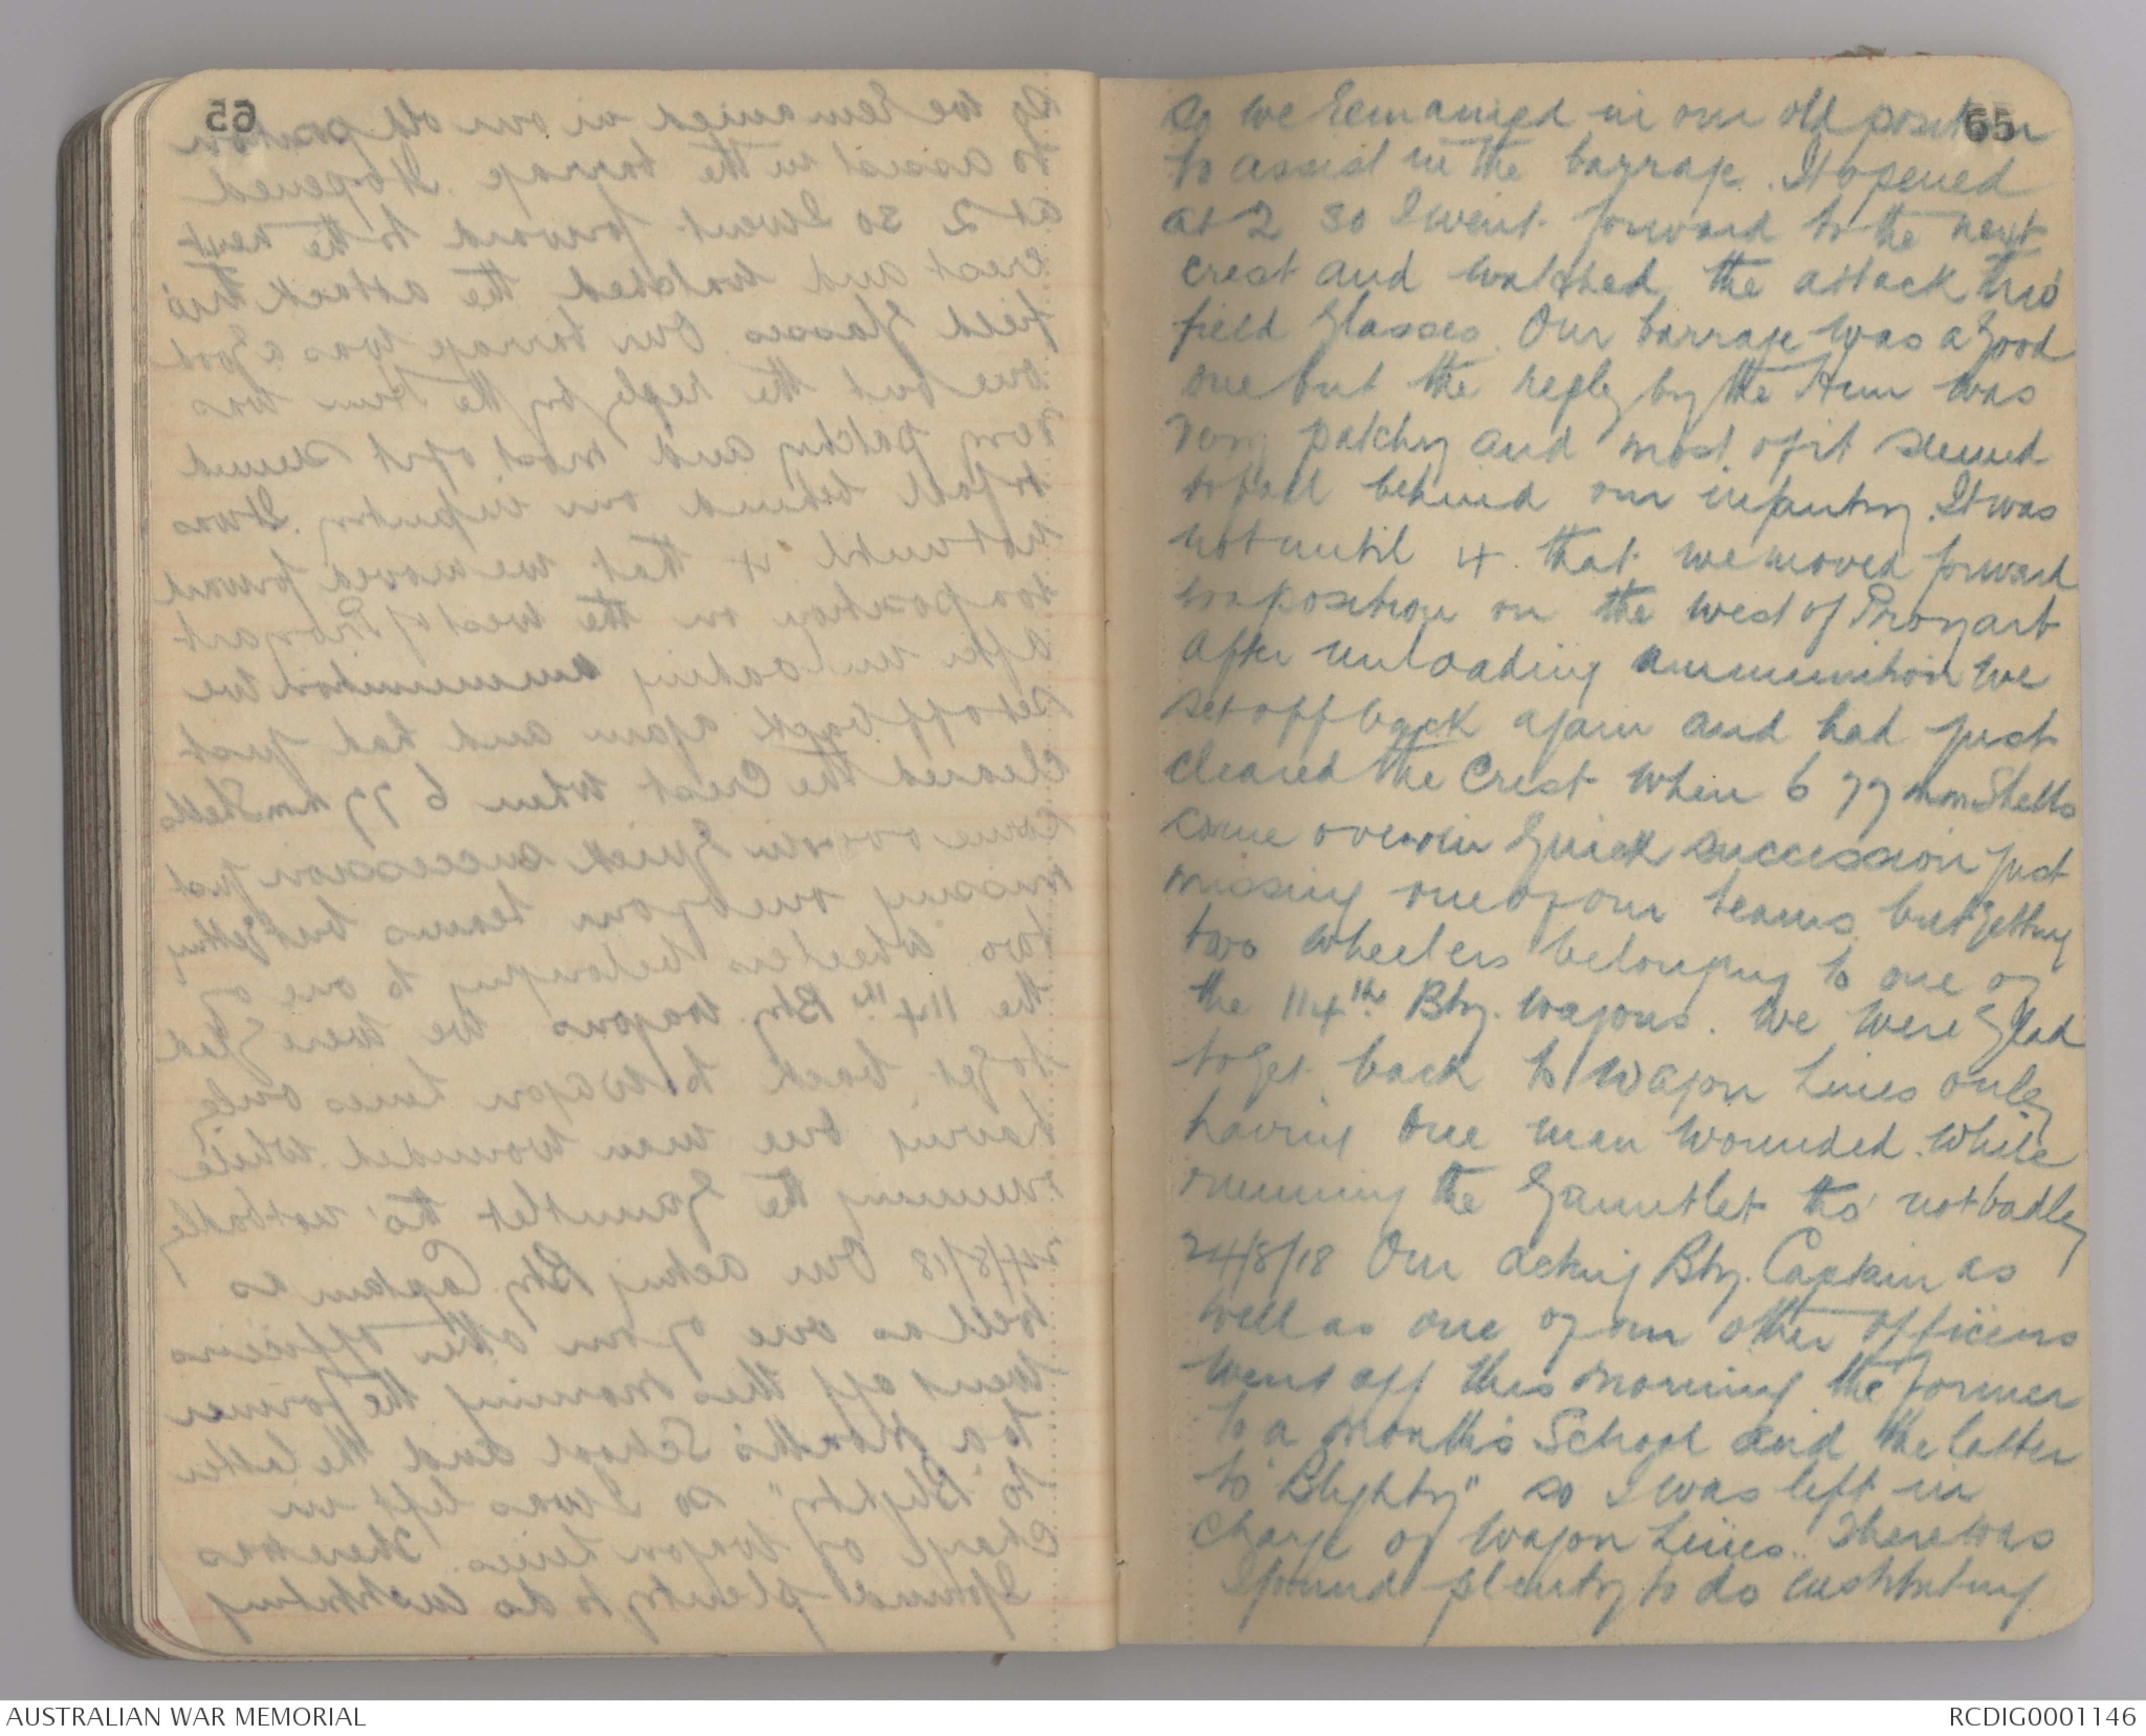 65
65
As we remained in our old position
to assist in the barrage. It opened
at 2 so I went forward to the next
crest and watched the attack thro'
field glasses. Our barrage was a good
one but the reply by the Hun was
very patchy and most of it seemed
to fall behind our infantry. It was
not until 4 that we moved forward
to a position on the west of Proyart
After unloading ammunition we
set off back again and had just
cleared the Crest when 6 77 mm Shells
came over in quick succession just
missing one of our teams but getting
two wheelers belonging to one of
the 114th Bty. wagons. We were glad
to get back to Wagon Lines only
having one man wounded while
running the Gauntlet tho' not badly
24/8/18 Our acting Bty. Captain as
well as one of our other officers
went off this morning the former
to a month's School and the latter
to "Blighty" so I was left in
charge of Wagon Lines. There was
I found plenty to do
AUSTRALIAN WAR MEMORIAL
RCDIG0001146